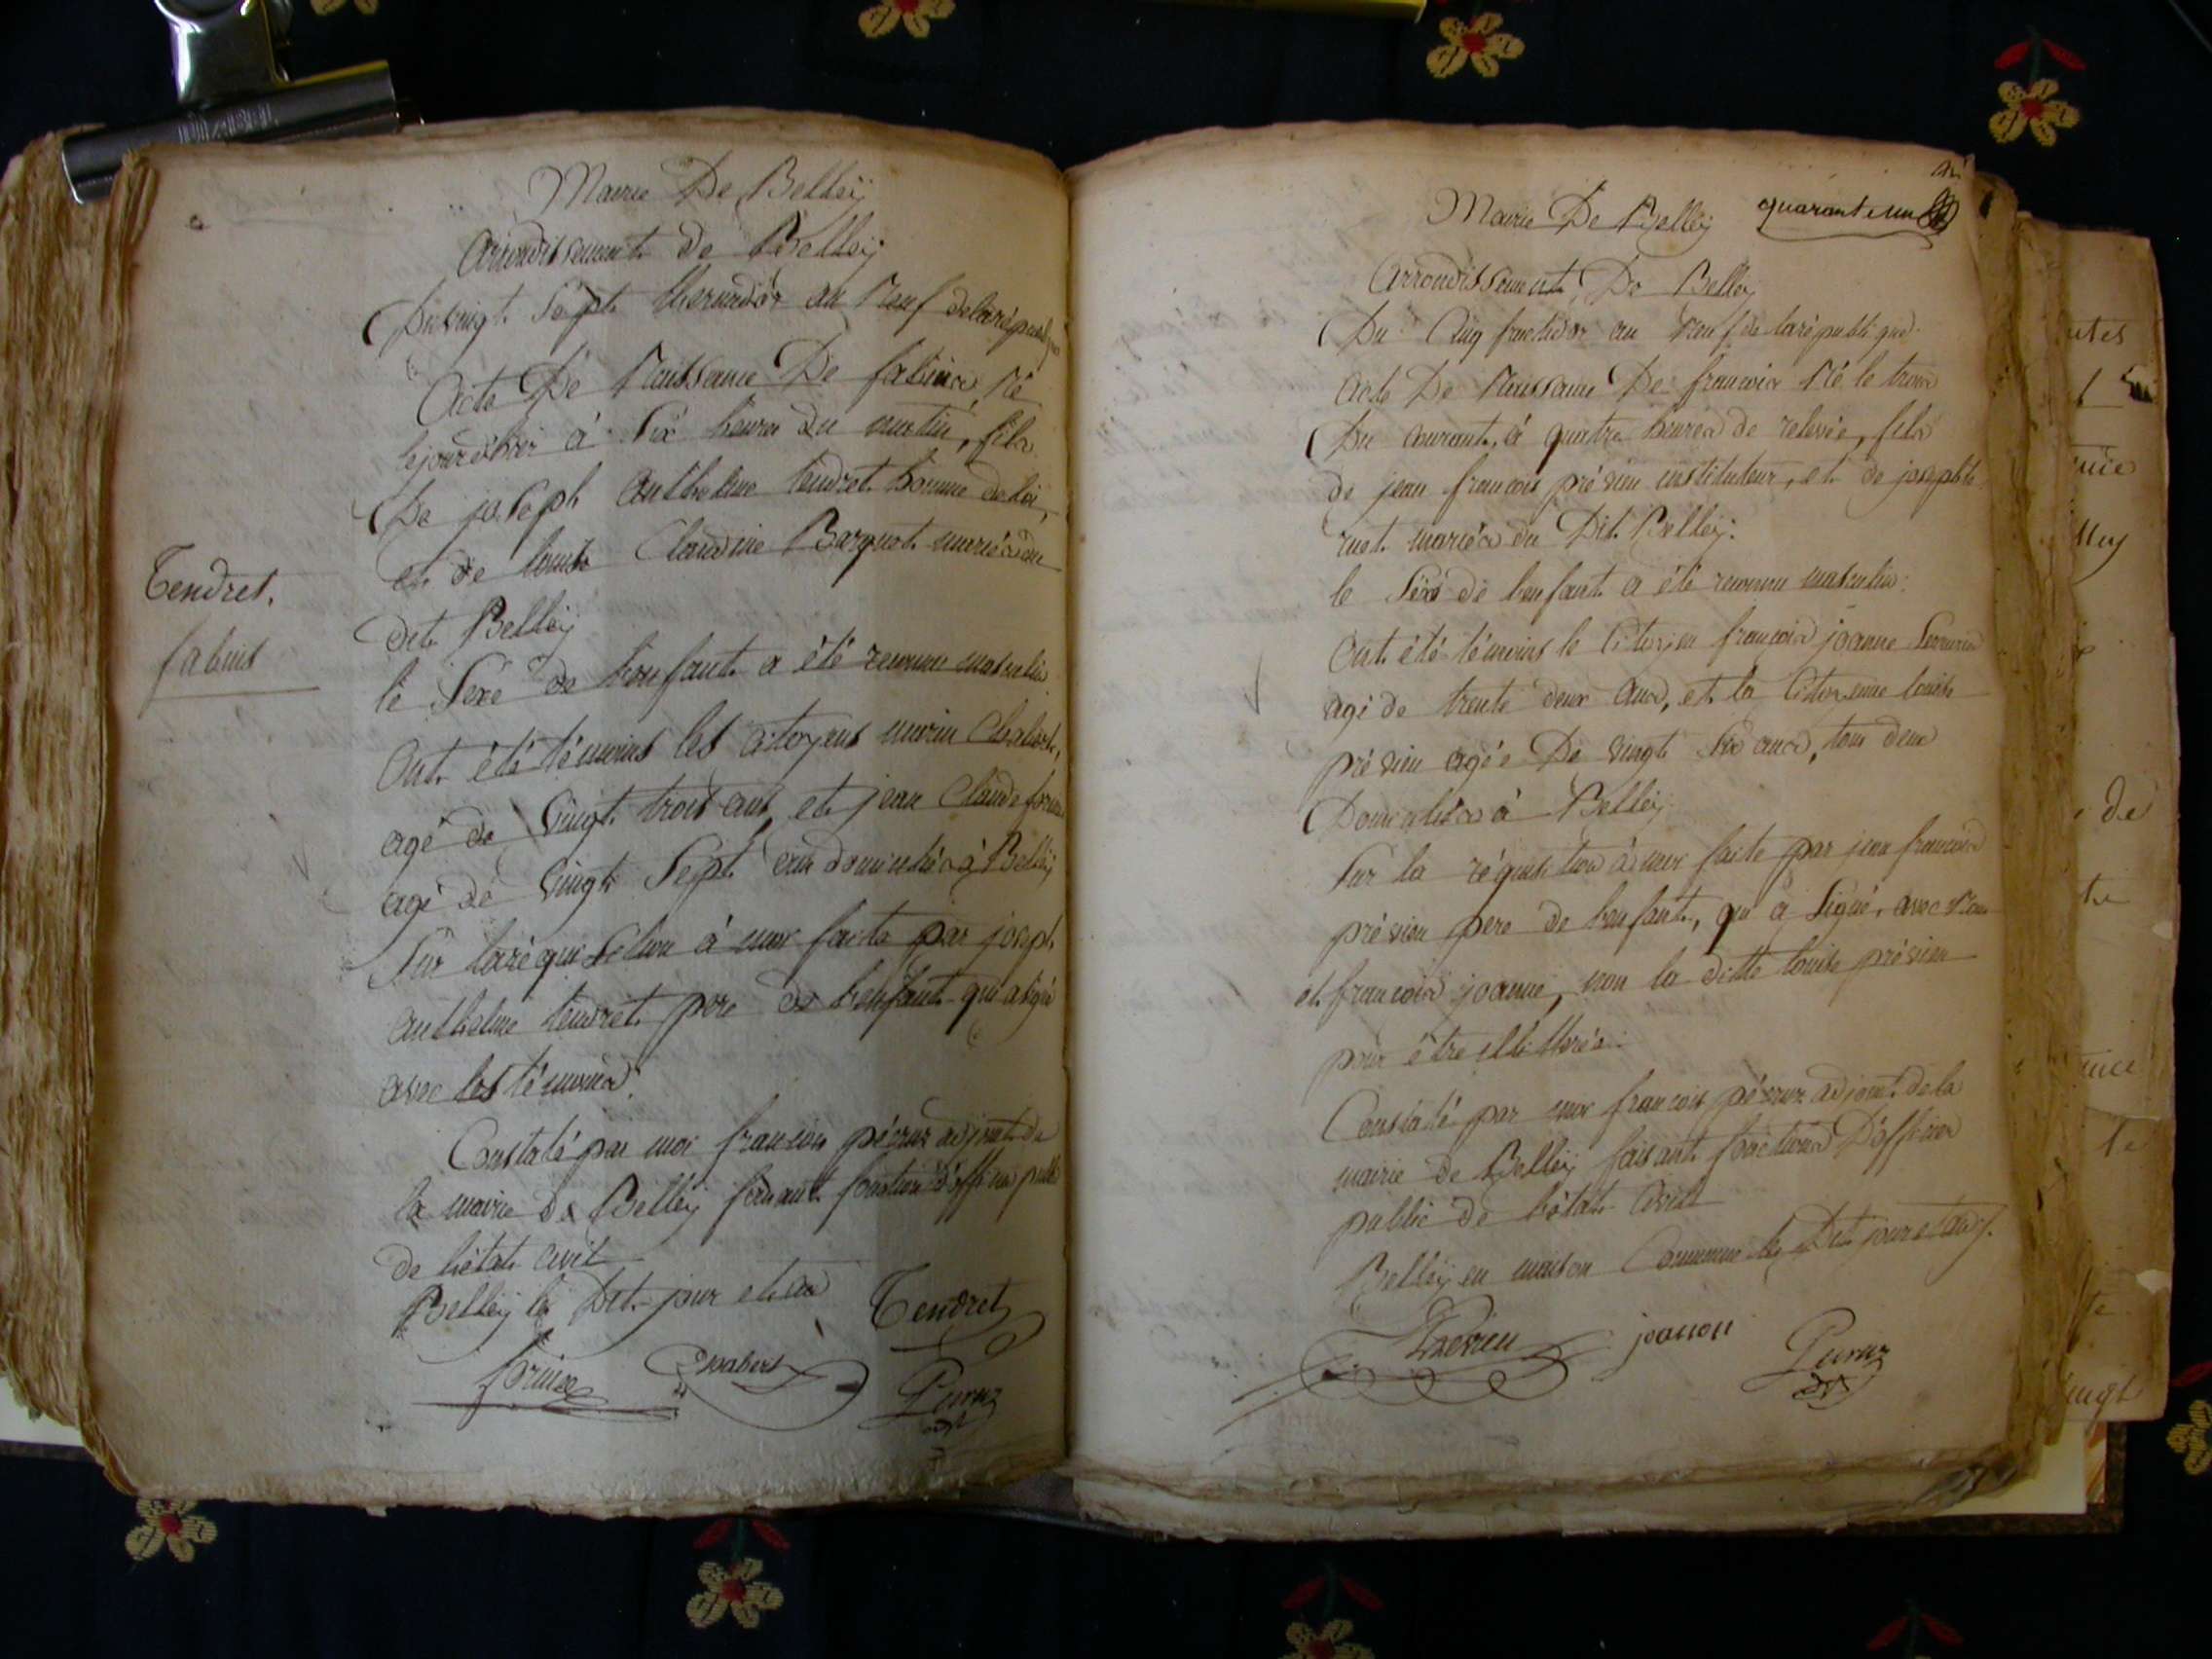 Mairie De Belleÿ
Arrondissement de Belleÿ
Du vingt sept thermidor an Neuf de la répub
Acte De Naissance De fabius, Né
le jourd'hier à six heures du matin, fils
De joseph Anthelme tendret homme de loi,
et de Louise Claudine Barquet mariés du
dit Belleÿ
le sexe de l'enfant a été reconnu masculin
Ont été témoins les citoyens Chabert,
agé de vingt trois ans, et jean Claude
agé de vingt sept ans domiciliés à Belleÿ
Sur la réquisition à moi faite par joseph
anthelme tendret pere de l'enfant qui a signé
avec les témoins.
Constaté par moi françois péruz adjoint de
la mairie de Belleÿ faisant fonction d'officier public
de l'état civil
Belleÿ le Dit jour et an
Tendret
Chabert
Peruz
Tendret.
fabius
quarante un
Mairie De Belleÿ
Arrondissement De Belleÿ
Du Cinq fructidor an Neuf de la république
Acte De Naissance De françois Né le trois
Du courant, à quatre heures de relevée, fils
de jean françois prévieu instituteur, et de josephte
ruet mariés du Dit Belleÿ.
le sexe de l'enfant a été reconnu masculin.
Ont été témoins le Citoyen françois joanne
agé de trente deux ans, et la Citoyenne louise
prévieu agée De vingt six ans, tous deux
Domiciliés à Belleÿ
Sur la réquisition à moi faite par jean françois
prévieu pere de l'enfant, qui a signé, avec Nous
et françois joanne, non la ditte louise prévieu
pour être illittérée.
Constaté par moi françois péruz adjoint de la
mairie de Belleÿ faisant fonctions D'officier
public de l'état Civil
Belleÿ en maison Commune les Dit jour et an
Prévieu
Peruz